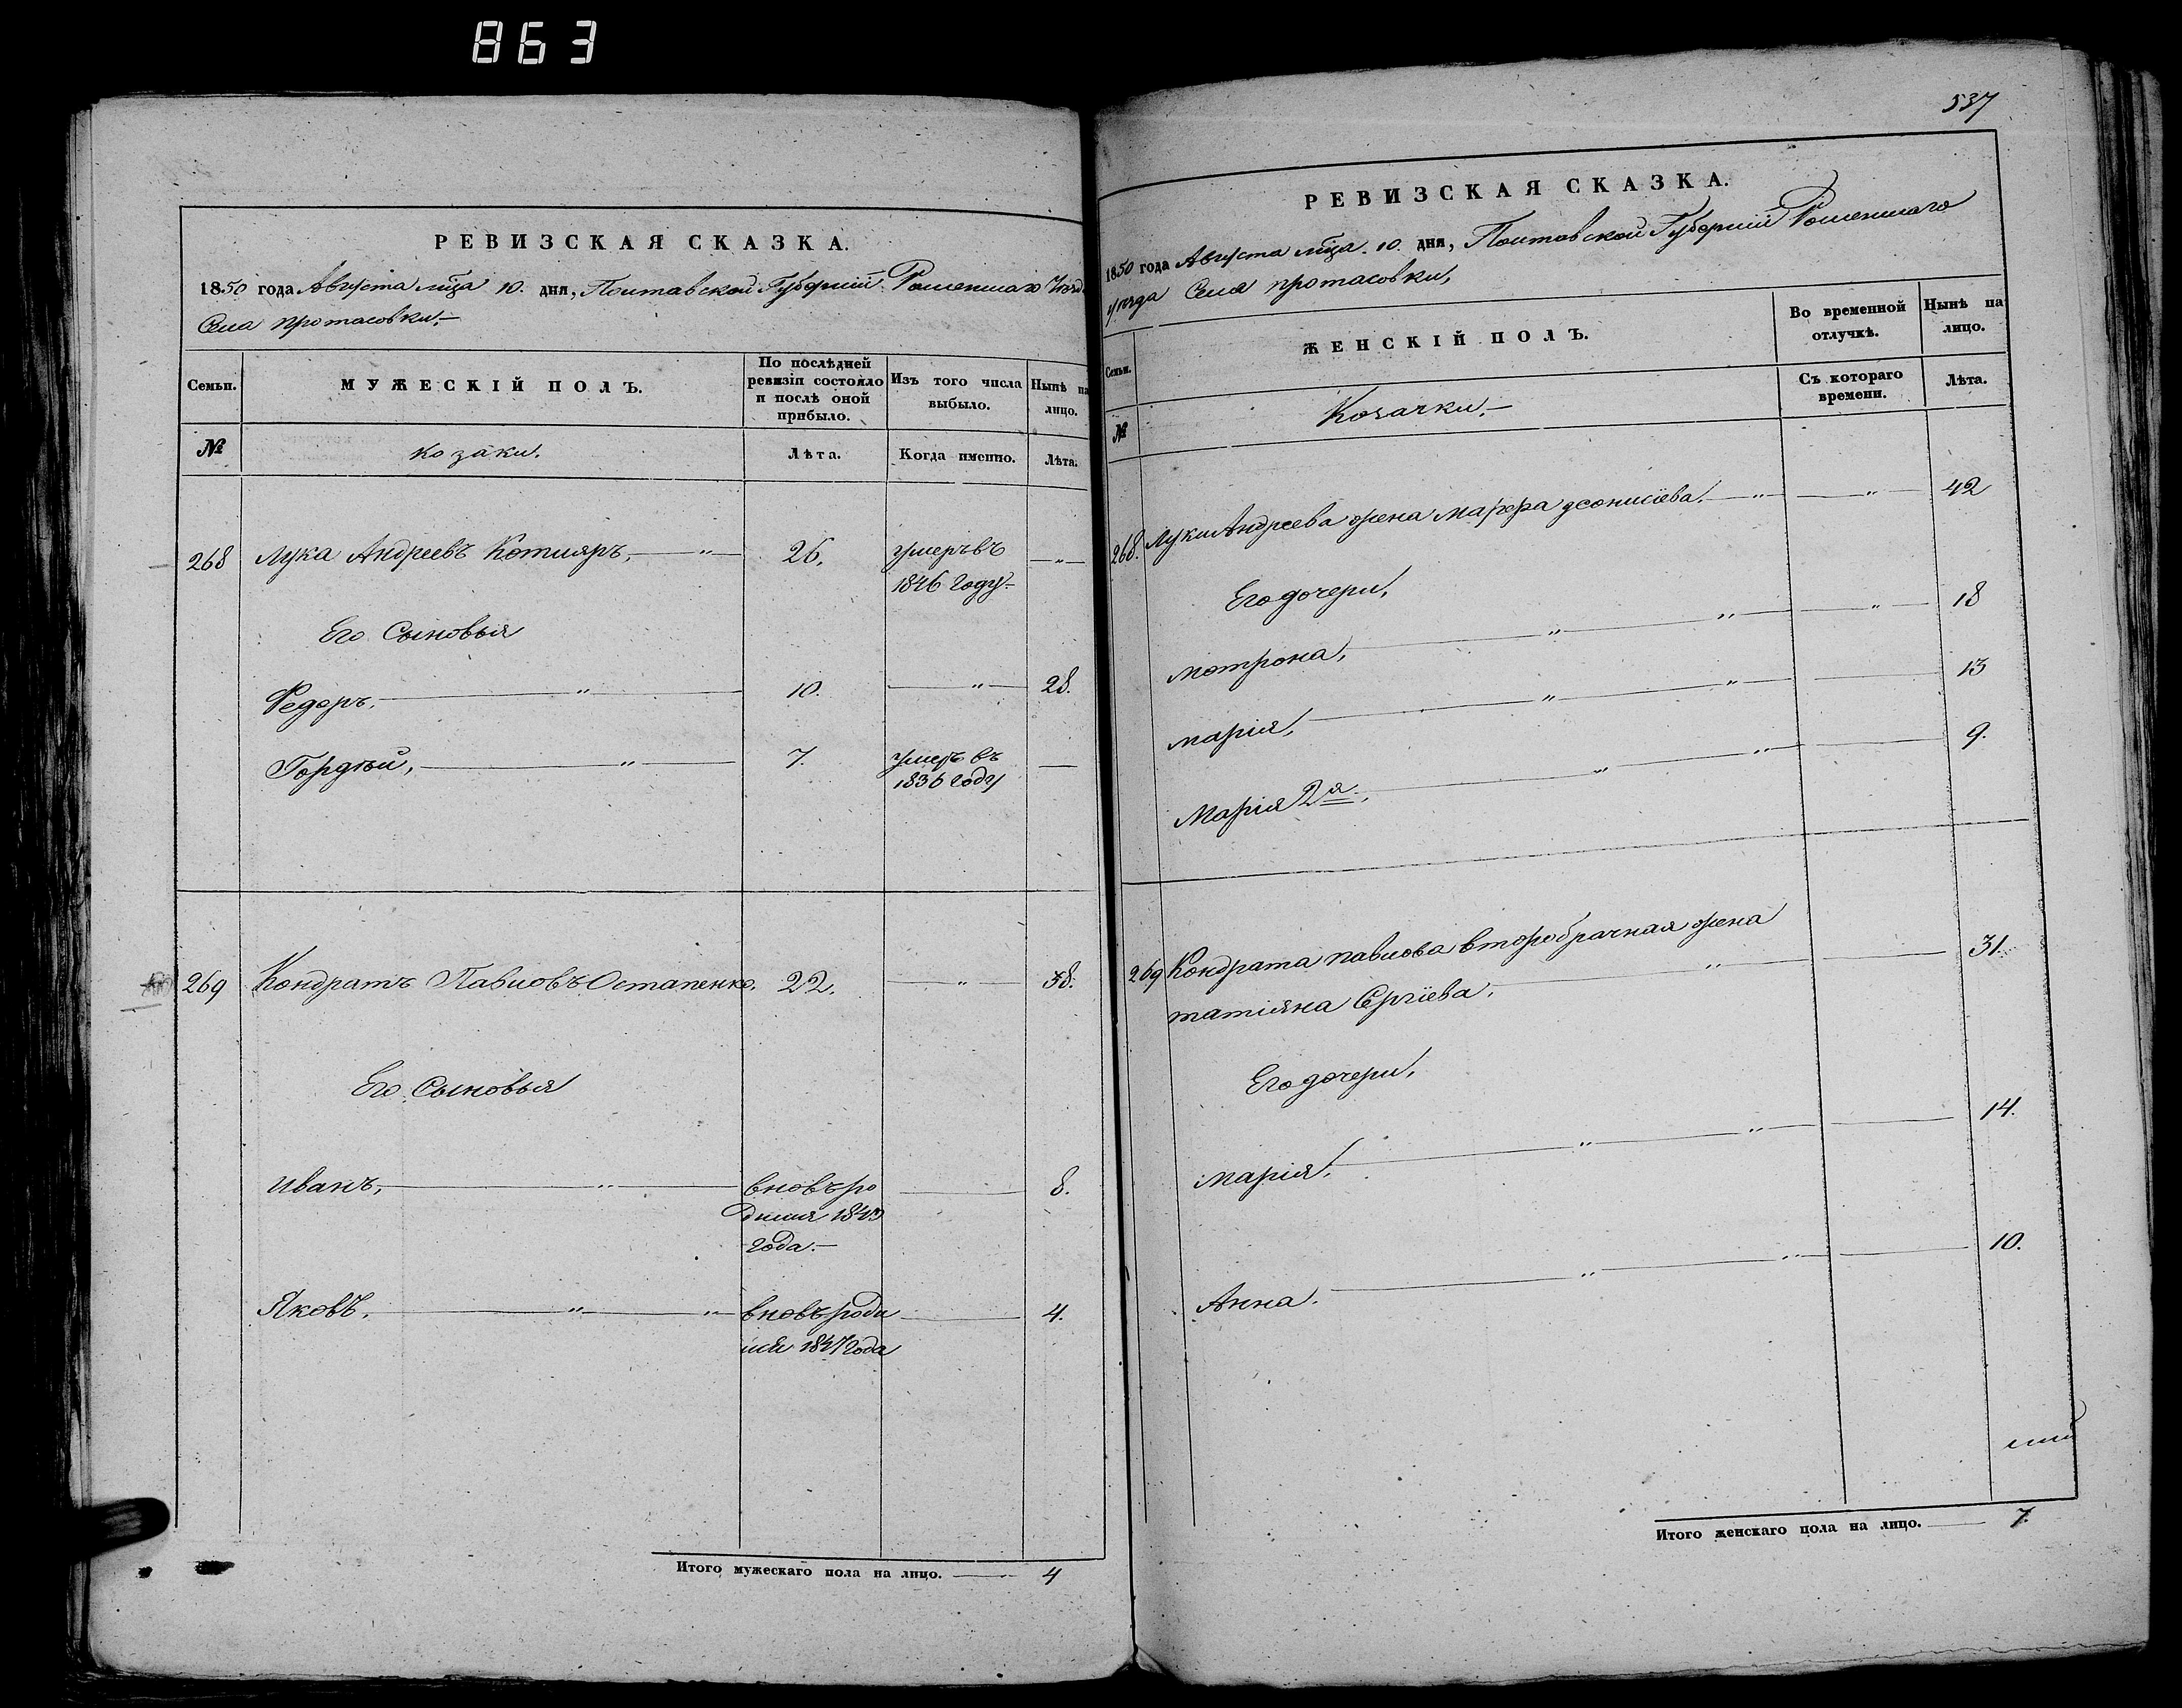 863
РЕВИЗСКАЯ СКАЗКА.
1850 года Августа мца 10. дня, Полтавской Губерніи Роменшаго
Села протасовки,—
Семьи.
МУЖЕСКІЙ ПОЛЪ.
По послѣдней ревизіи состояло и послѣ оной прибыло.
Изъ того числа выбыло.
Нынѣ на лицо.
№
козаки.
Лѣта.
Когда именно.
Лѣта.
268 Лука Андреевъ Котляръ, 26. умеръ въ
1846 году
Его Сыновья
Федоръ, 10. 28.
Гордѣй, 7. умеръ въ
1836 году
269 Кондратъ Павловъ Остапенко, 22. 38.
Его Сыновья
Иванъ, вновь ро 8.
дился
года.—
Яковъ. вновь роди 4.
лся 1847 года
Итого мужескаго пола на лицо. 4
537
РЕВИЗСКАЯ СКАЗКА.
1850 года Августа мца. 10. дня, Полтавской Губерніи Роменшаго
уѣзда Села протасовки,
Семьи.
ЖЕНСКІЙ ПОЛЪ.
Во временной отлучкѣ.
Нынѣ на лицо.
№
Козачки.—
Съ котораго времени.
Лѣта.
268. Луки Андреева жена Марфа деонисіева. 42
Его дочери,
мотрона, 18
марія, 13
Марія 2я, 9.
269 Кондрата павлова второбрачная жена 31.
татіяна Сергіева.
Его дочери,
марія. 14.
Анна. 10.
Итого женскаго пола на лицо. 7.